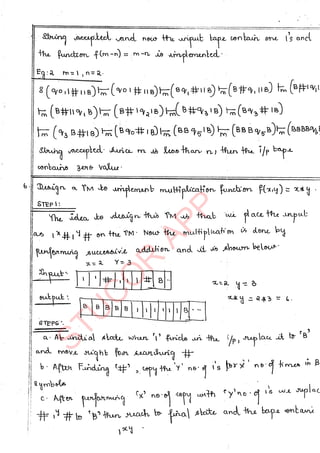 String accepted and now the input tape contain one 1's and
the function f(m-n) = m-n is implemented.
Eg: 2 m=1, n=2.
δ(q0,1#11B) ⊢m (q01#11B) ⊢m (Bq1#11B) ⊢m (B#q1,11B) ⊢m (B#1q1,1
⊢m (B#11q1,B) ⊢m (B#1q21B) ⊢m (B#q31B) ⊢m (Bq3#1B)
⊢m (q3B#1B) ⊢m (Bq0#1B) ⊢m (BBq51B) ⊢m (BBBq5B) ⊢m (BBBBq6
String accepted. Since m is less than n, then the i/p tape
contains zero value.
6. Design a TM to implement multiplication function f(x,y) = x*y.
STEP 1:
The idea to design this TM is that we place the input
as 1x#1y# on the TM. Now the multiplication is done by
performing successive addition and it is shown below.
x=2 Y=3
Input: 1 1 # 1 1 1 # B - x=2 y=3
output: B B B B B 1 1 1 1 1 1 B - - x*y = 2*3 = 6.
STEPS:
a. At initial state when '1' finds in the i/p, replace it to 'B'
and move right for searching #
b. After Finding '#', copy the 'Y' no. of 1's for 'x' no. of times in B
symbols
c. After performing 'x' no. of copy with 'y' no. of 1's we replac
# 1y # to 'B' then reach to final state and the tape contain
1x*y.
STUCOR APP